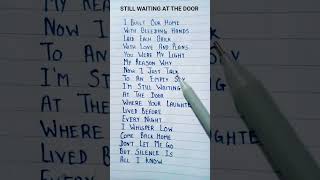 STILL WAITING AT THE DOOR
I BUILT OUR HOME
WITH BLEEDING HANDS
LAID EACH BRICK
WITH LOVE AND PLANS
YOU WERE MY LIGHT
MY REASON WHY
NOW I JUST TALK
TO AN EMPTY SKY
I'M STILL WAITING
AT THE DOOR
WHERE YOUR LAUGHTER
LIVED BEFORE
EVERY NIGHT
I WHISPER LOW
COME BACK HOME
DON'T LET ME GO
BUT SILENCE IS
ALL I KNOW
TO AN
I'M ST
AT THE
WHERE
LIVED B